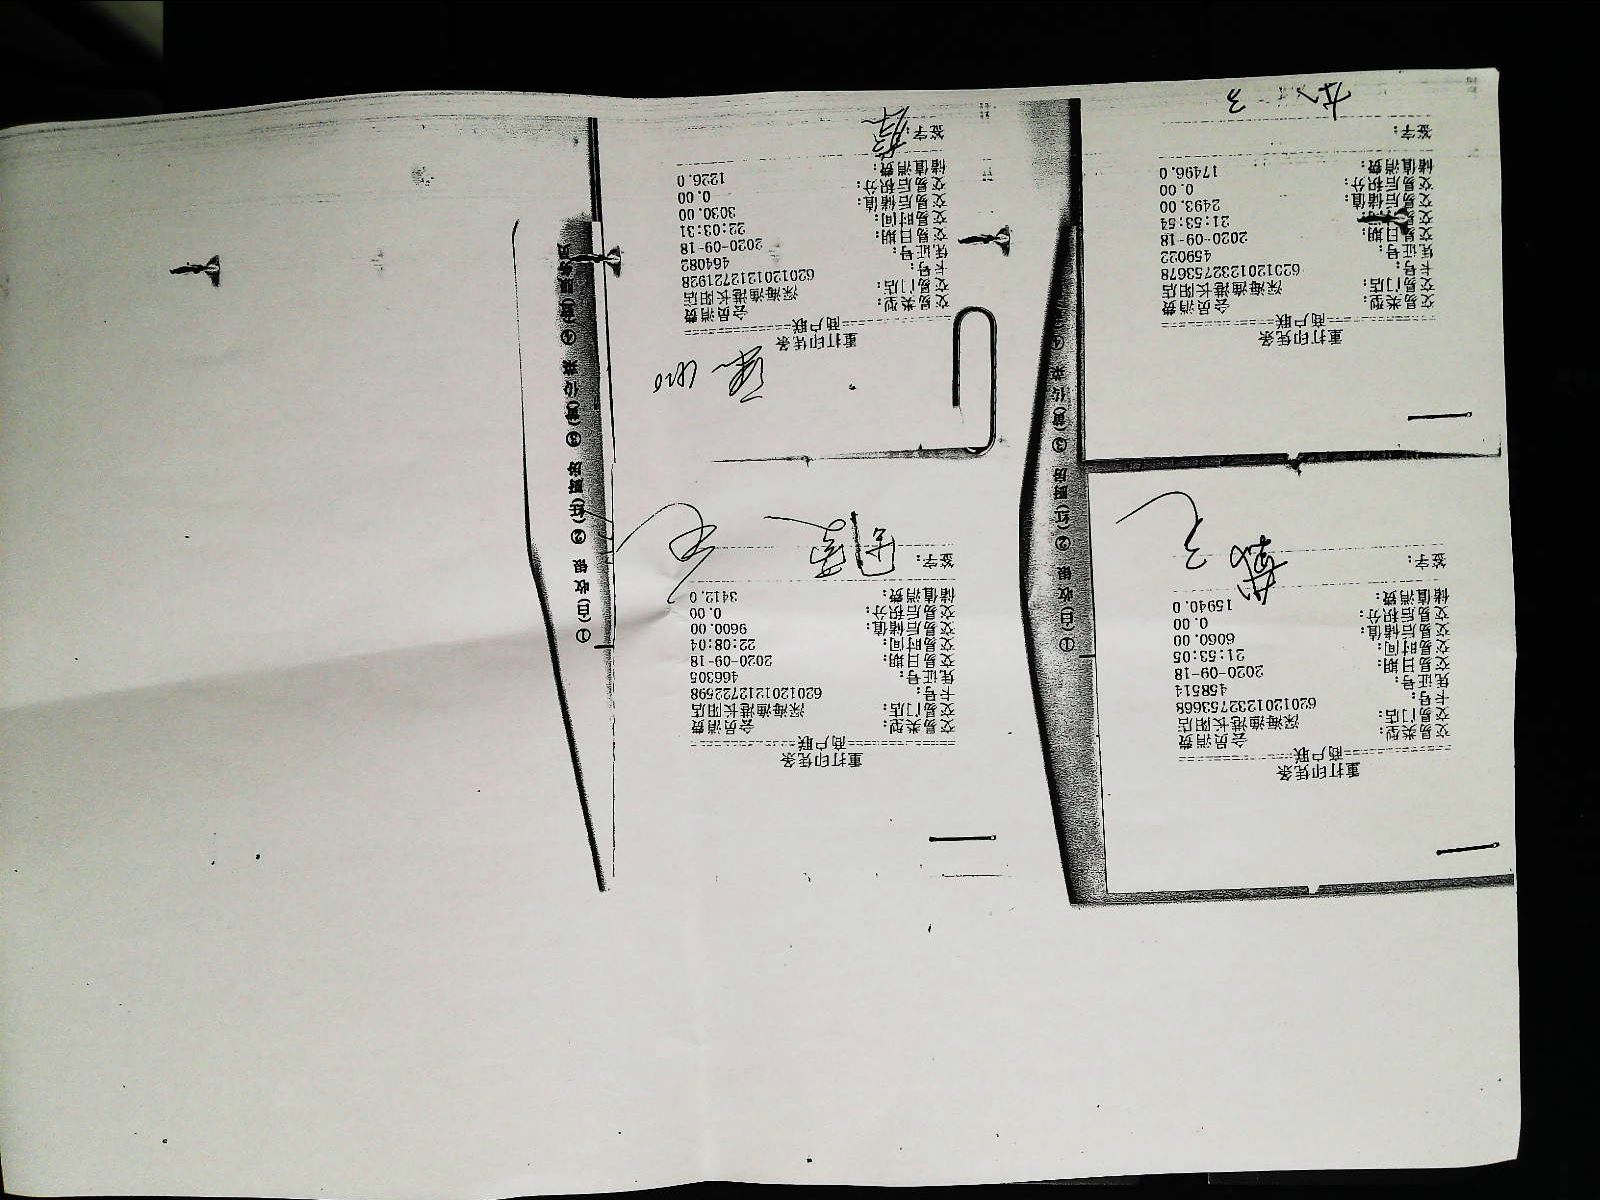 重打印凭条
==========商户联==========
交易类型: 会员消费
交易门店: 深海渔港长阳店
卡号: 6201201232753668
凭证号: 458514
交易日期: 2020-09-18
交易时间: 21:53:05
交易后储值: 6060.00
交易后积分: 0.00
储值消费: 15940.0
签字:
重打印凭条
==========商户联==========
交易类型: 会员消费
交易门店: 深海渔港长阳店
卡号: 6201201212722598
凭证号: 466305
交易日期: 2020-09-18
交易时间: 22:08:04
交易后储值: 9600.00
交易后积分: 0.00
储值消费: 3412.0
签字:
重打印凭条
==========商户联==========
交易类型: 会员消费
交易门店: 深海渔港长阳店
卡号: 6201201232753678
凭证号: 459022
交易日期: 2020-09-18
交易时间: 21:53:54
交易后储值: 2493.00
交易后积分: 0.00
储值消费: 17496.0
签字:
重打印凭条
==========商户联==========
交易类型: 会员消费
交易门店: 深海渔港长阳店
卡号: 6201201212721928
凭证号: 464082
交易日期: 2020-09-18
交易时间: 22:03:31
交易后储值: 3030.00
交易后积分: 0.00
储值消费: 1226.0
签字:
①(白)收银 ②(红)厨房 ③(黄)传菜 ④
①(白)收银 ②(红)厨房 ③(黄)传菜 ④(蓝)服务员